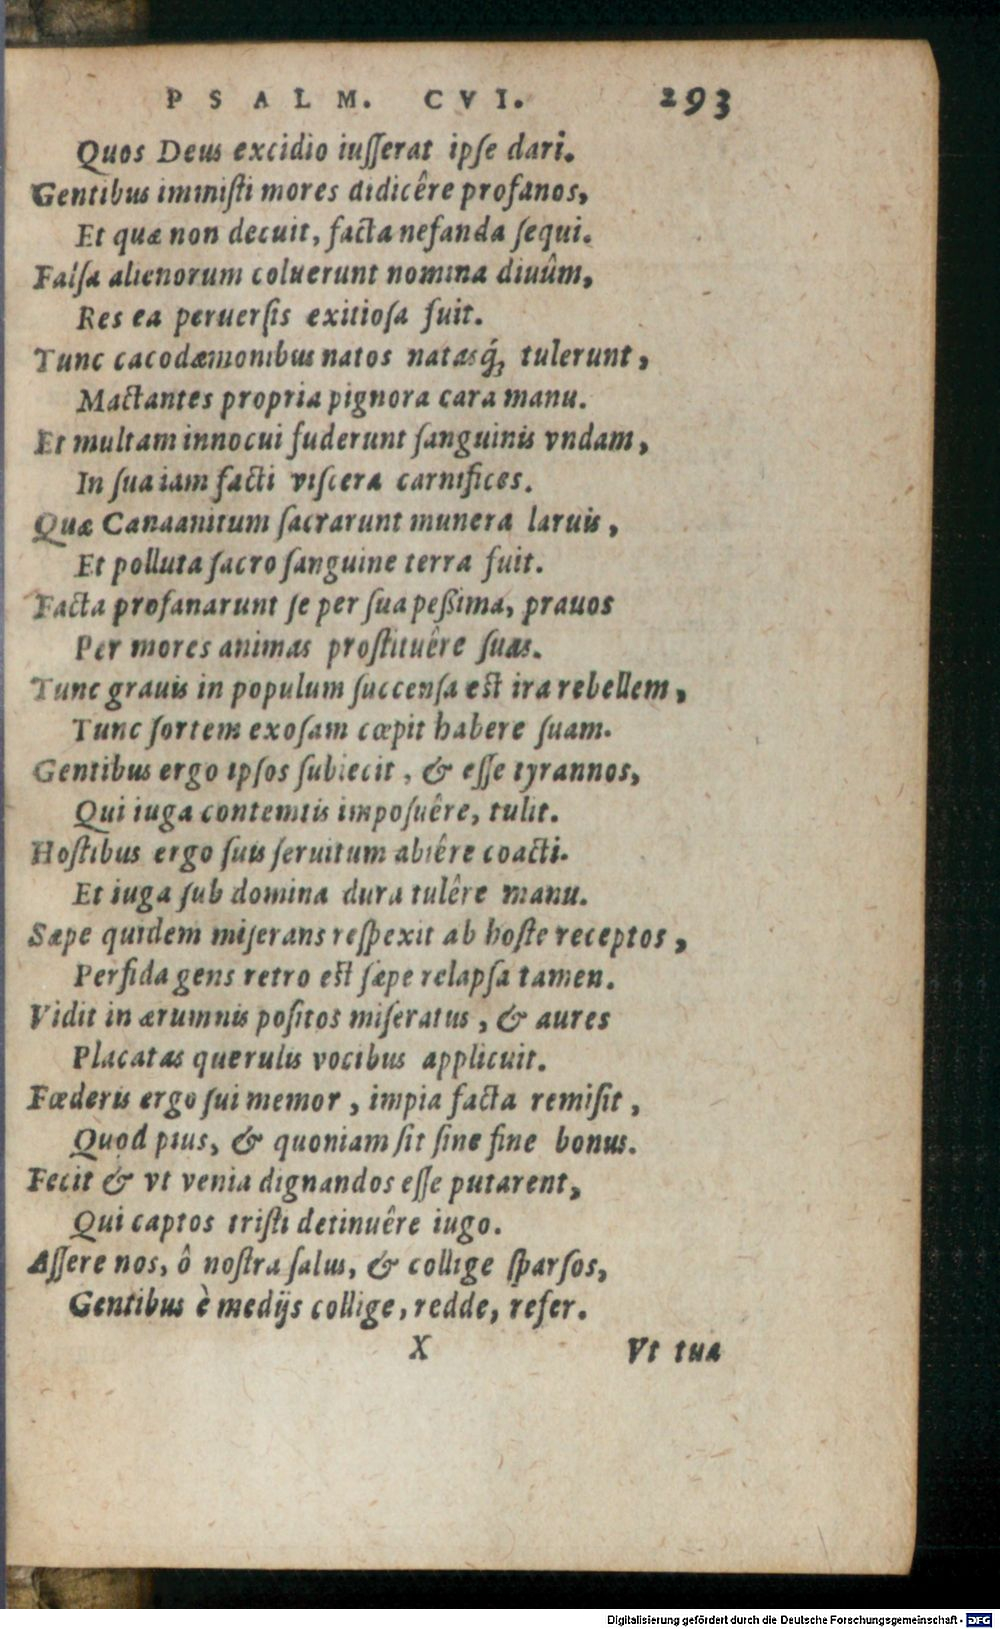 PSALM. CVI. 293
Quos Deus excidio iusserat ipse dari.
Gentibus immisti mores didicêre profanos,
Et quæ non decuit, facta nefanda sequi.
Falsa alienorum coluerunt nomina diuûm,
Res ea peruersis exitiosa fuit.
Tunc cacodæmonibus natos natasq́; tulerunt,
Mactantes propria pignora cara manu.
Et multam innocui fuderunt sanguinis vndam,
In sua iam facti viscera carnifices.
Quæ Canaanitum sacrarunt munera laruis,
Et polluta sacro sanguine terra fuit.
Facta profanarunt se per sua peßima, prauos
Per mores animas prostituêre suas.
Tunc grauis in populum succensa est ira rebellem,
Tunc sortem exosam cœpit habere suam.
Gentibus ergo ipsos subiecit, & esse tyrannos,
Qui iuga contemtis imposuêre, tulit.
Hostibus ergo suis seruitum abiêre coacti.
Et iuga sub domina dura tulêre manu.
Sæpe quidem miserans respexit ab hoste receptos,
Perfida gens retro est sæpe relapsa tamen.
Vidit in ærumnis positos miseratus, & aures
Placatas querulis vocibus applicuit.
Fœderis ergo sui memor, impia facta remisit,
Quod pius, & quoniam sit sine fine bonus.
Fecit & vt venia dignandos esse putarent,
Qui captos tristi detinuêre iugo.
Assere nos, ô nostra salus, & collige sparsos,
Gentibus è medijs collige, redde, refer.
X Vt tua
Digitalisierung gefördert durch die Deutsche Forschungsgemeinschaft - DFG